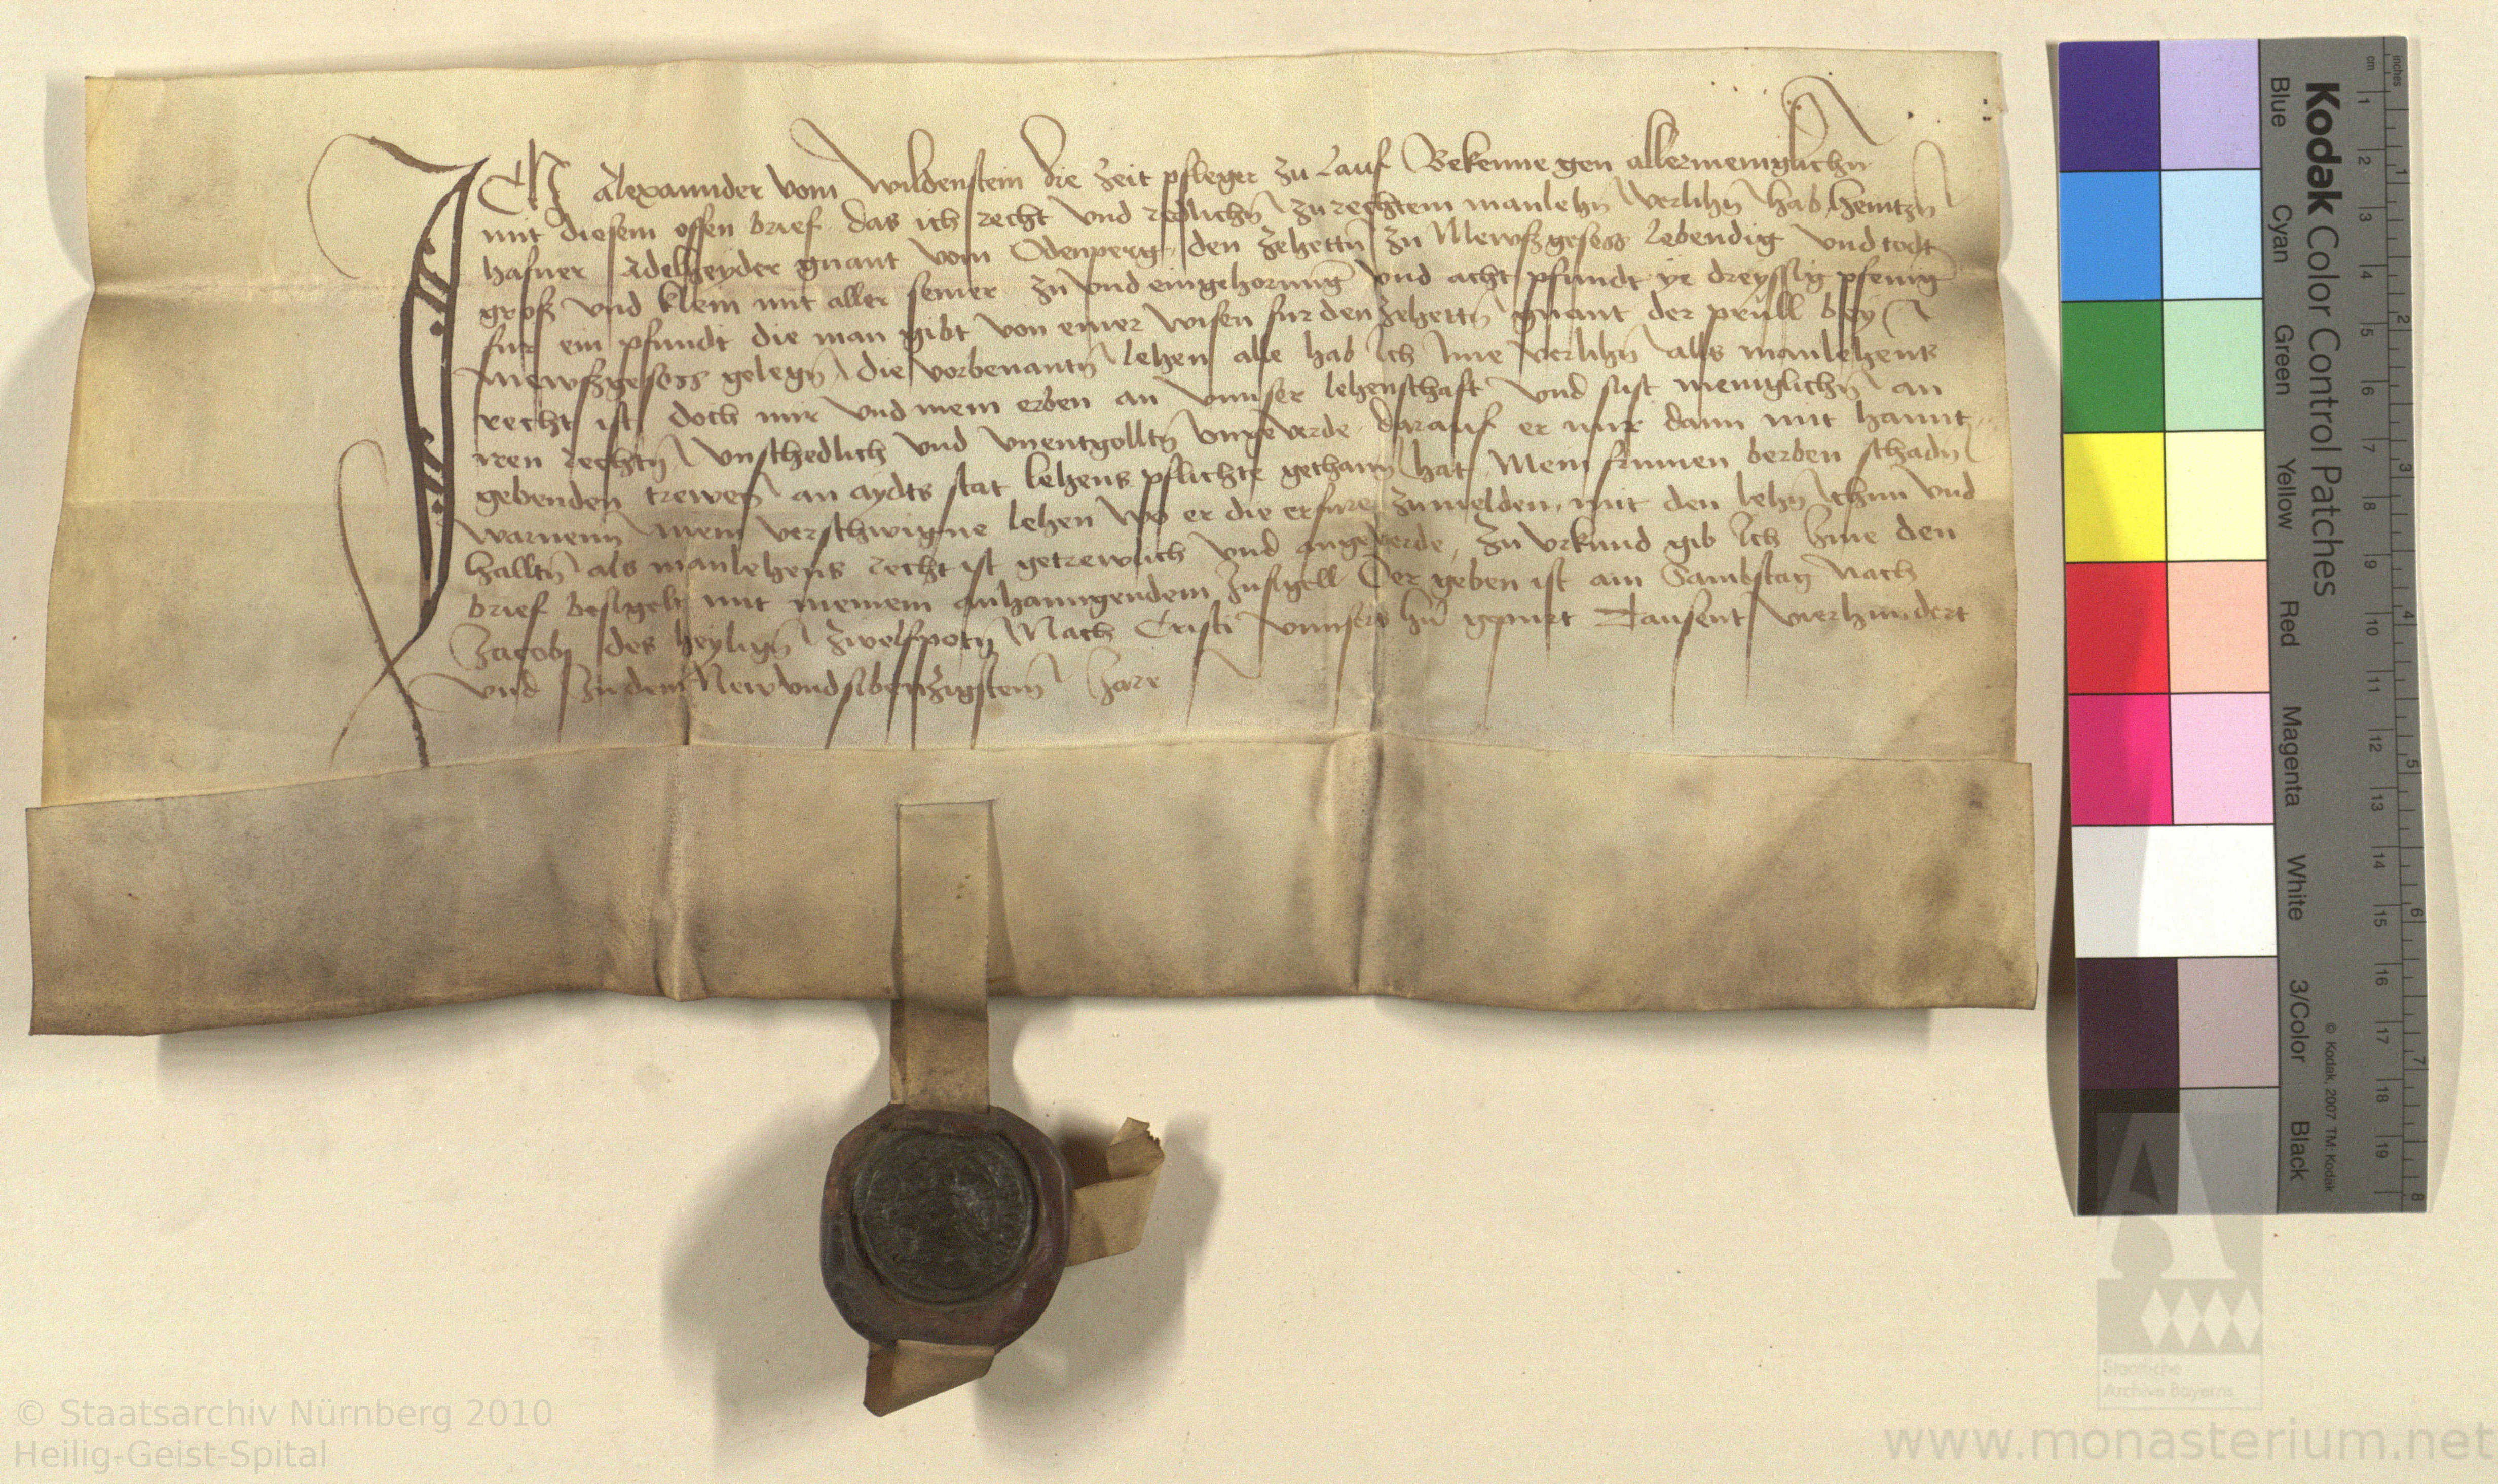 ICH Alexannder vom Wildenstein die zeit pfleger zu Lauf Bekenne gen allermeniglichn
mit diesem offen brief das ich recht vnd redlichn zu rechtem manlehn verlihn hab heintzn
hafner Adelheyder gnant vom Odenperg den zehettn zu Mewsgesess lebendig vnd todt
groß vnd klein mit aller seiner zu vnd eingehorung vnd acht pfundt ye dreyssig pfenig
fur ein pfundt die man gibt von einer wisen fur den zehettn gnant der prull bey
Mewsgesess gelegn die vorbenantn lehen alle hab Ich Ime verlihn als manlehens
recht ist doch mir vnd mein erben an vnnser lehenschaft vnd sust meniglichn an
iren rechtn vnschedlich vnd vnentgolltn vngeverde darauf er mir dann mit hannt
gebenden trewen an aydts stat lehens pflichte gethann hat Mein frumen werben schadn
warnenn mein verschwigne lehen wo er die erfure zumelden mit den lehn thun vnd
halltn als manlehens recht ist getrewlich vnd angeverde zu vrkund gib Ich Ime den
brief besigelt mit meinem anhanngendem Insigell Der geben ist am Sambstag Nach
Jacobj des heylign zwelfpotn Nach Cristi vnnsers hn gepurt Tausent vierhundert
vnd In dem Newvndsibenzigstem Jare
Kodak Color Control Patches
Blue Cyan Green Yellow Red Magenta White 3/Color Black
© Kodak, 2007 TM: Kodak
cm 1 2 3 4 5 6 7 8 9 10 11 12 13 14 15 16 17 18 19
inches 1 2 3 4 5 6 7 8
Staatliche
Archive Bayerns
© Staatsarchiv Nürnberg 2010
Heilig-Geist-Spital
www.monasterium.net